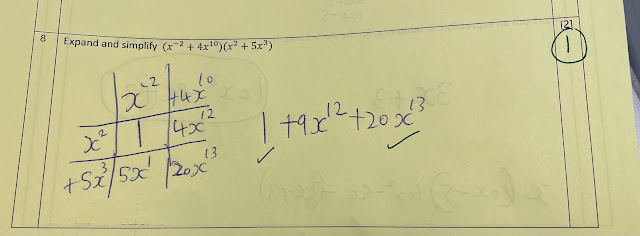 [2]
8 Expand and simplify (x⁻² + 4x¹⁰)(x² + 5x³)
1
x⁻² +4x¹⁰
x² 1 4x¹² 1 +9x¹² +20x¹³
+5x³ 5x¹ 20x¹³